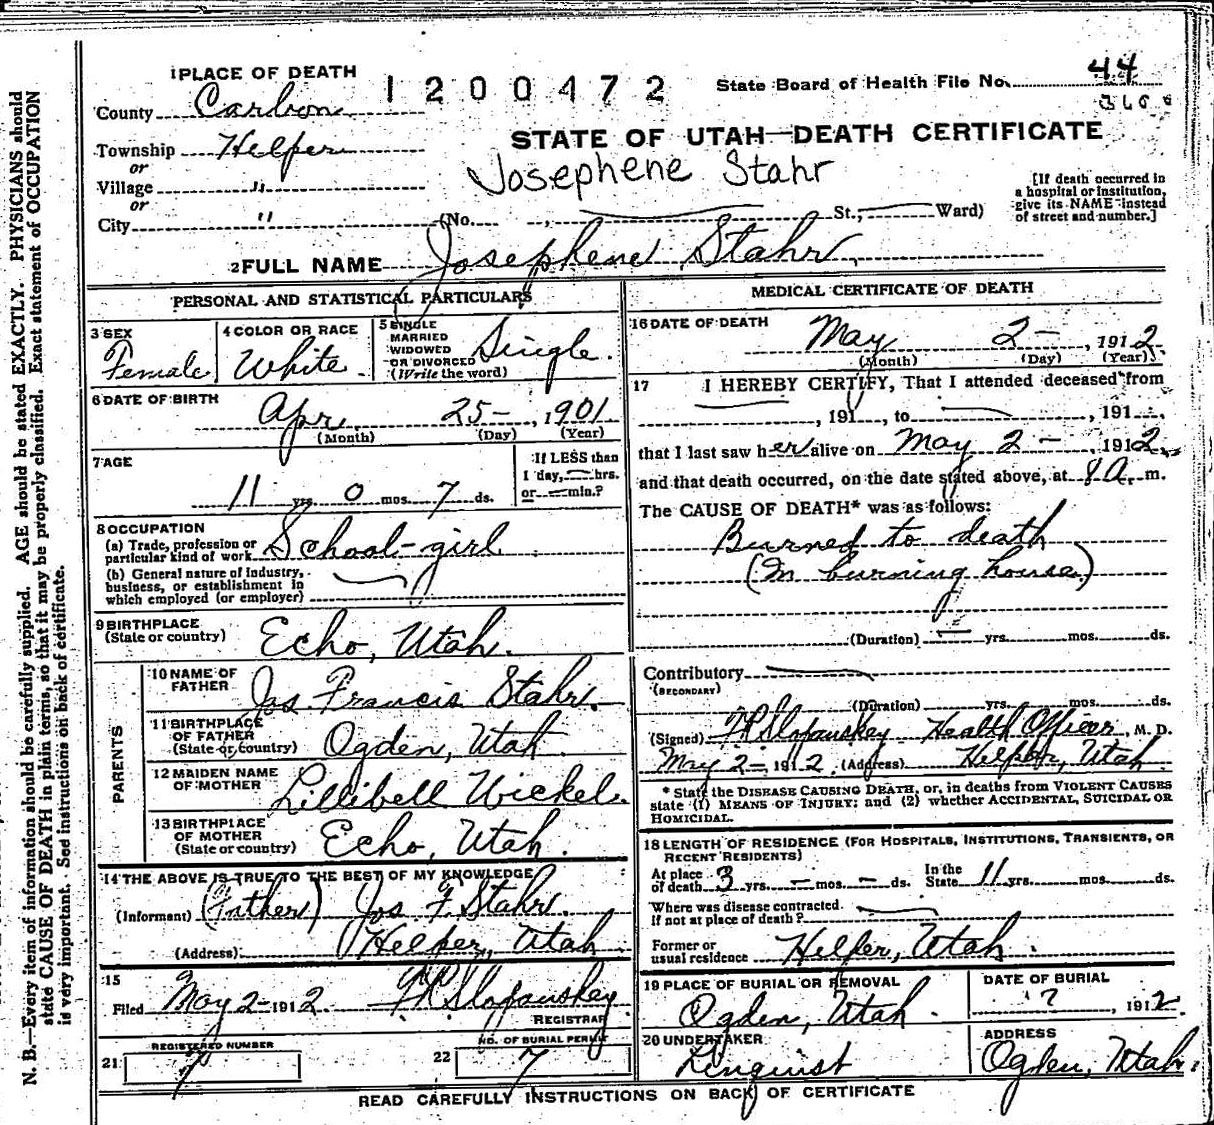 1 PLACE OF DEATH
1200472
State Board of Health File No. 44
County Carbon
STATE OF UTAH—DEATH CERTIFICATE
Township Helper
Josephene Stahr
or
Village "
or
City "
(No. , St., Ward)
[If death occurred in
a hospital or institution,
give its NAME instead
of street and number.]
2 FULL NAME Josephene Stahr
PERSONAL AND STATISTICAL PARTICULARS
3 SEX
Female
4 COLOR OR RACE
White
5 SINGLE
MARRIED
WIDOWED
OR DIVORCED
(Write the word)
Single.
6 DATE OF BIRTH
Apr 25 , 1901
(Month) (Day) (Year)
7 AGE
11 yrs. 0 mos. 7 ds.
If LESS than
1 day, hrs.
or min.?
8 OCCUPATION
(a) Trade, profession or
particular kind of work School-girl
(b) General nature of industry,
business, or establishment in
which employed (or employer)
9 BIRTHPLACE
(State or country) Echo, Utah.
PARENTS
10 NAME OF
FATHER Jos. Francis Stahr.
11 BIRTHPLACE
OF FATHER
(State or country) Ogden, Utah.
12 MAIDEN NAME
OF MOTHER Lillibell Wickel.
13 BIRTHPLACE
OF MOTHER
(State or country) Echo, Utah.
14 THE ABOVE IS TRUE TO THE BEST OF MY KNOWLEDGE
(Informant) (Father) Jos F. Stahr.
(Address) Helper, Utah
15
Filed May 2 1912
REGISTRAR
REGISTERED NUMBER
21 7
NO. OF BURIAL PERMIT
22 7
MEDICAL CERTIFICATE OF DEATH
16 DATE OF DEATH
May 2 , 1912.
(Month) (Day) (Year)
17 I HEREBY CERTIFY, That I attended deceased from
, 191 , to , 191 ,
that I last saw her alive on May 2 , 1912,
and that death occurred, on the date stated above, at 8 a. m.
The CAUSE OF DEATH* was as follows:
Burned to death
(In burning house.)
(Duration) yrs. mos. ds.
Contributory
(SECONDARY)
(Duration) yrs. mos. ds.
(Signed) Health Officer, M. D.
May 2, 1912. (Address) Helper, Utah.
* State the DISEASE CAUSING DEATH, or, in deaths from VIOLENT CAUSES
state (1) MEANS OF INJURY; and (2) whether ACCIDENTAL, SUICIDAL OR
HOMICIDAL.
18 LENGTH OF RESIDENCE (FOR HOSPITALS, INSTITUTIONS, TRANSIENTS, OR
RECENT RESIDENTS)
At place
of death 3 yrs. – mos. – ds.
In the
State 11 yrs. mos. ds.
Where was disease contracted.
if not at place of death?
Former or
usual residence Helper, Utah.
19 PLACE OF BURIAL OR REMOVAL
Ogden, Utah.
DATE OF BURIAL
? , 1912
20 UNDERTAKER
Linquist
ADDRESS
Ogden, Utah.
READ CAREFULLY INSTRUCTIONS ON BACK OF CERTIFICATE
N. B.—Every item of information should be carefully supplied. AGE should be stated EXACTLY. PHYSICIANS should
state CAUSE OF DEATH in plain terms, so that it may be properly classified. Exact statement of OCCUPATION
is very important. See instructions on back of certificate.